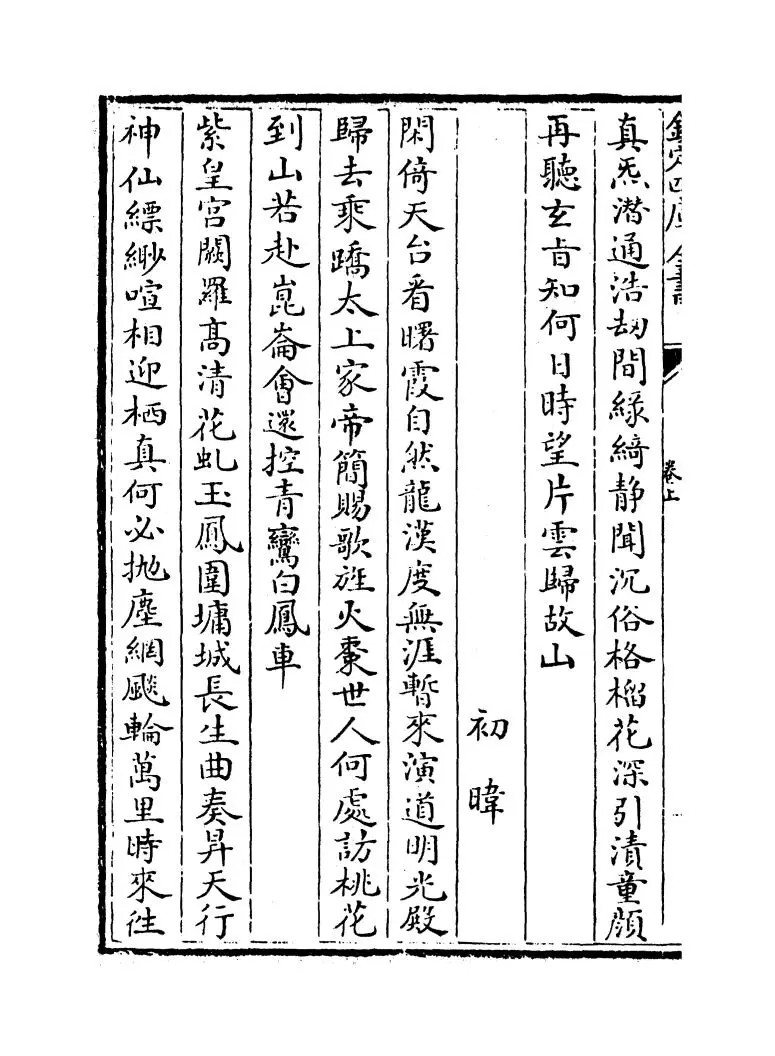 欽定四庫全書
卷上
真炁潛通浩刼間綠綺静聞沉俗格榴花深引漬童顔
再聽玄旨知何日時望片雲歸故山
初暐
閑倚天台看曙霞自然龍漢度無涯暫來演道明光殿
歸去乘蹻太上家帝簡賜歌旌火棗世人何處訪桃花
到山若赴崑崙會還控青鸞白鳳車
紫皇宫闕羅髙清花虬玉鳳圍墉城長生曲奏昇天行
神仙縹緲喧相迎栖真何必抛塵網飈輪萬里時來徃